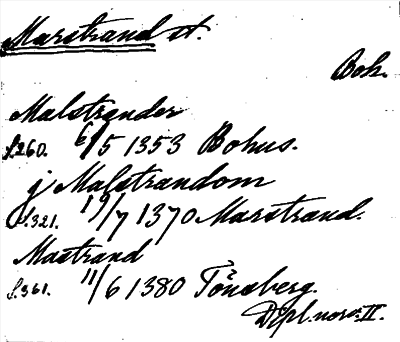 Marstrand st.
Boh.
Malstrander
s.260. 6/5 1353 Bohus.
j Malstrandom
s.321. 19/7 1370 Marstrand.
Mastrand
s.361. 11/6 1380 Tönsberg.
Dipl. norv. II.